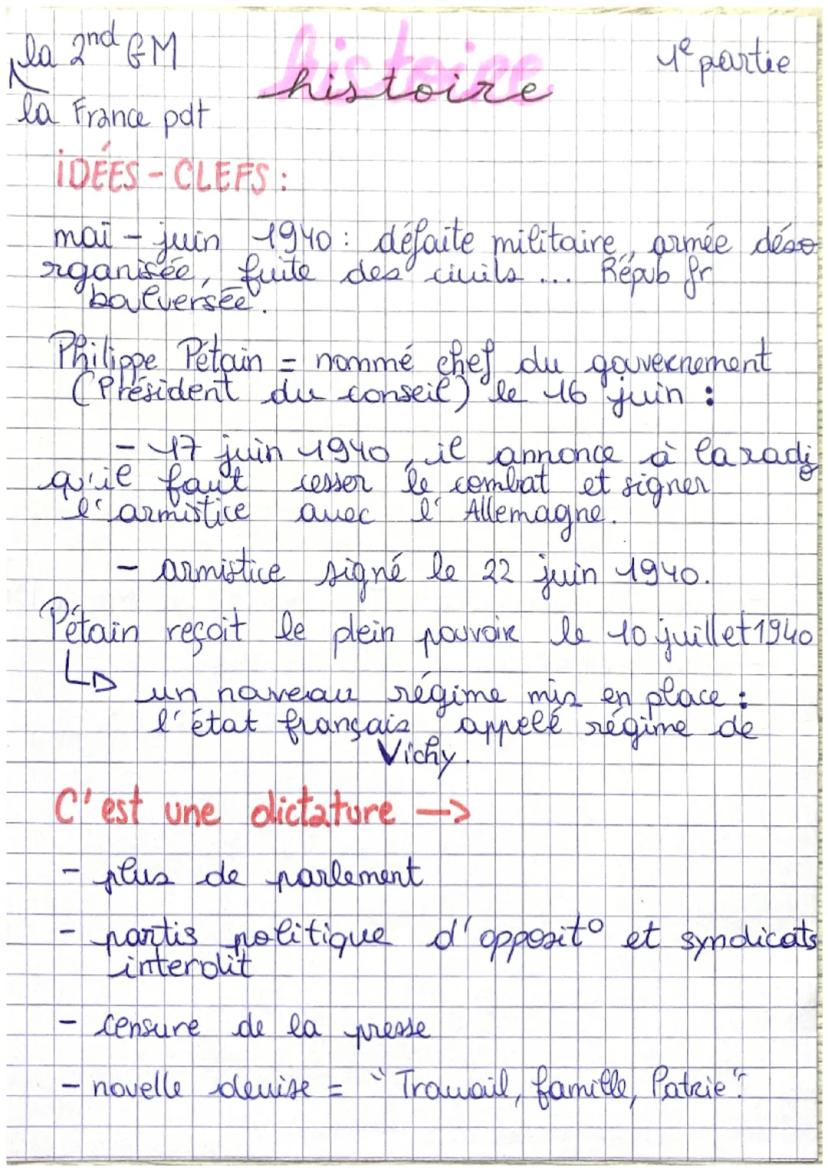 la 2nd GM
histoire
1e partie
la France pdt
IDÉES - CLEFS :
mai - juin 1940 : défaite militaire, armée déso
rganisée, fuite des civils ... Répub fr
boulversée.
Philippe Pétain = nommé chef du gouvernement
(Président du conseil) le 16 juin :
- 17 juin 1940, il annonce à la radio
qu'il faut cesser le combat et signer
l'armistice avec l'Allemagne.
- armistice signé le 22 juin 1940.
Pétain reçoit le plein pouvoir le 10 juillet 1940
↳ un nouveau régime mis en place :
l'état français appelé régime de
Vichy.
C'est une dictature →
- plus de parlement
- partis politique d'opposit° et syndicats
interdit
- censure de la presse
- novelle devise = "Travail, famille, Patrie".